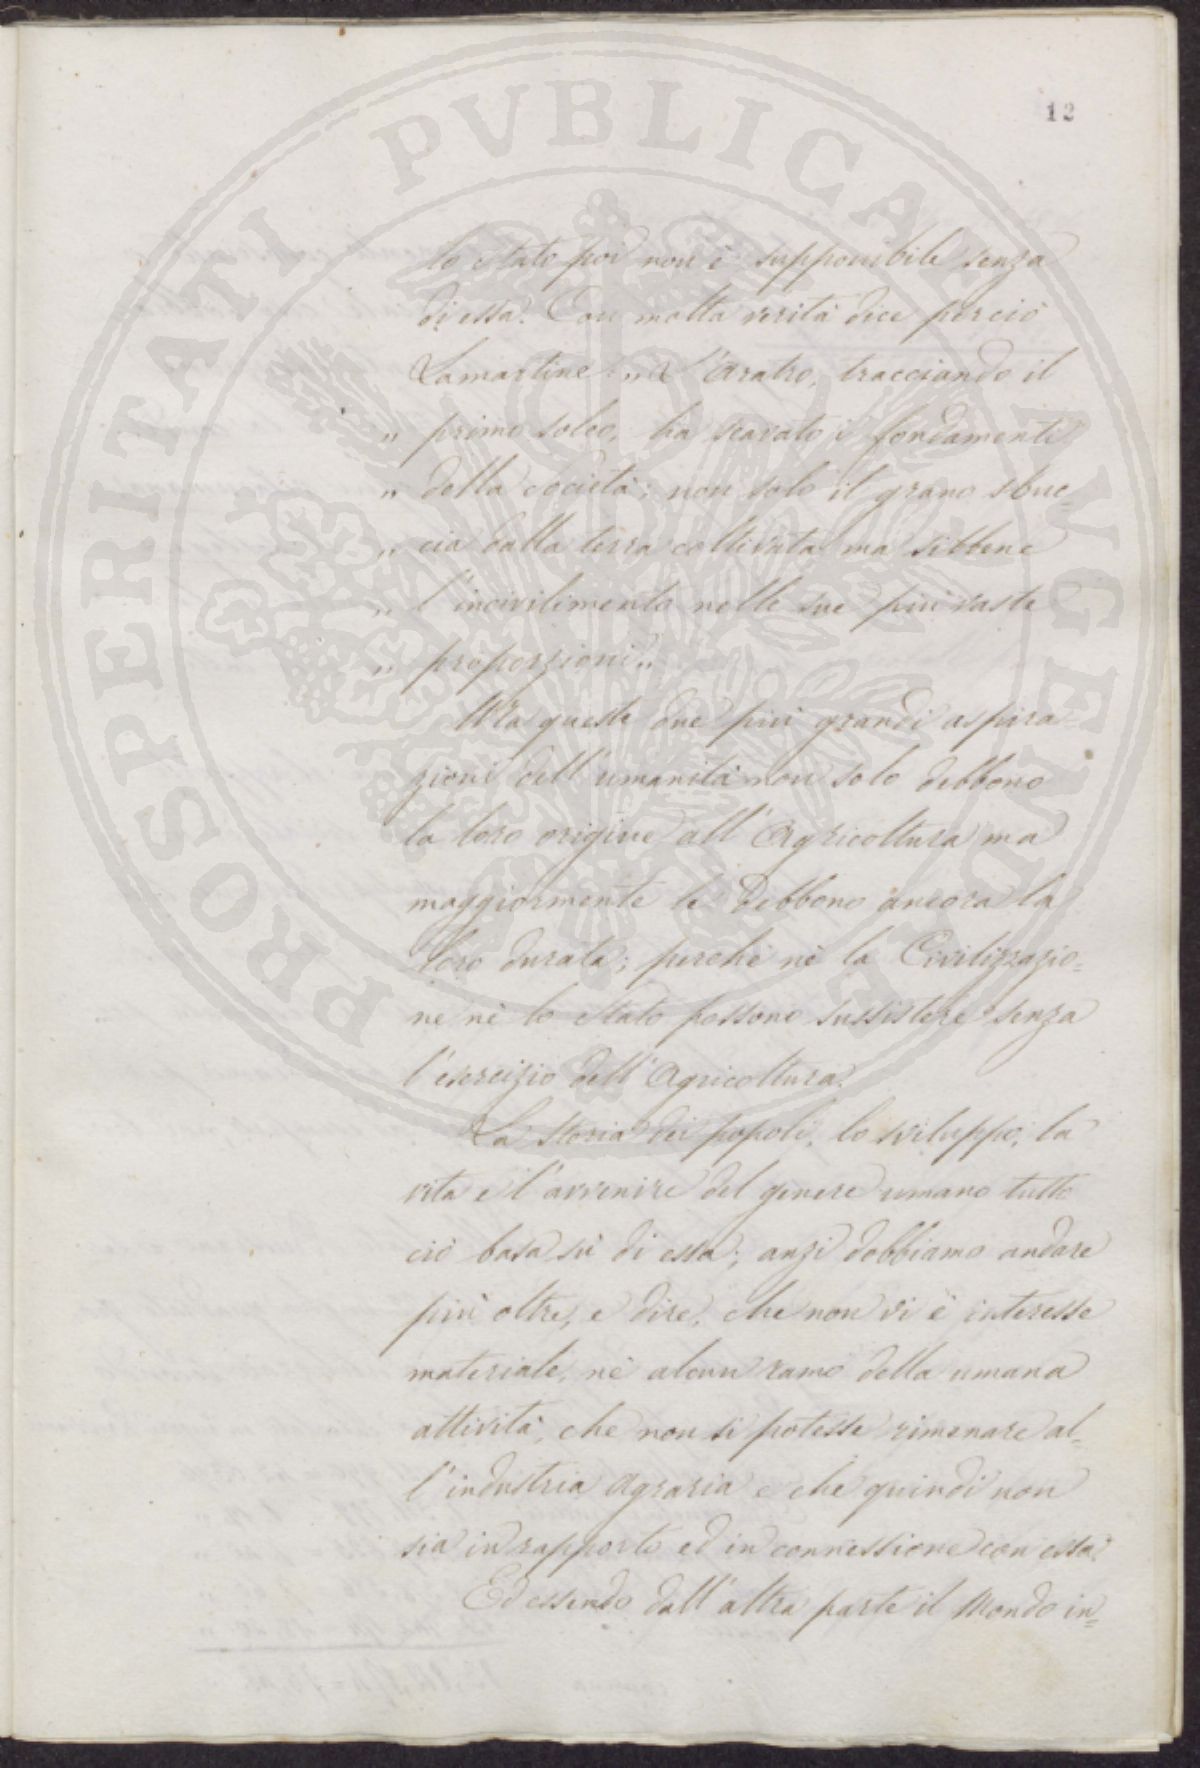 12
lo Stato poi non è supponibile senza
di essa. Con molta verità dice perciò
Lamartine: „ L'Aratro, tracciando il
„ primo solco, ha scavato i fondamenti
„ della Società; non solo il grano sbuc=
„ cia dalla terra coltivata ma sibbene
„ l'incivilimento nelle sue più vaste
„ proporzioni „
Ma queste due più grandi aspira
zioni dell'umanità non solo debbono
la loro origine all'Agricoltura ma
maggiormente le debbono ancora la
loro durata; perchè nè la Civilizzazio=
ne nè lo Stato possono sussistere senza
l'esercizio dell'Agricoltura.
La storia dei popoli, lo sviluppo, la
vita e l'avvenire del genere umano tutto
ciò basa sù di essa; anzi dobbiamo andare
più oltre, e dire, che non vi è interesse
materiale, nè alcun ramo della umana
attività, che non si potesse rimenare al=
l'industria Agraria e che quindi non
sia in rapporto ed in connessione con essa.
Ed essendo dall'altra parte il Mondo in=
PROSPERITATI PVBLICAE AVGENDAE